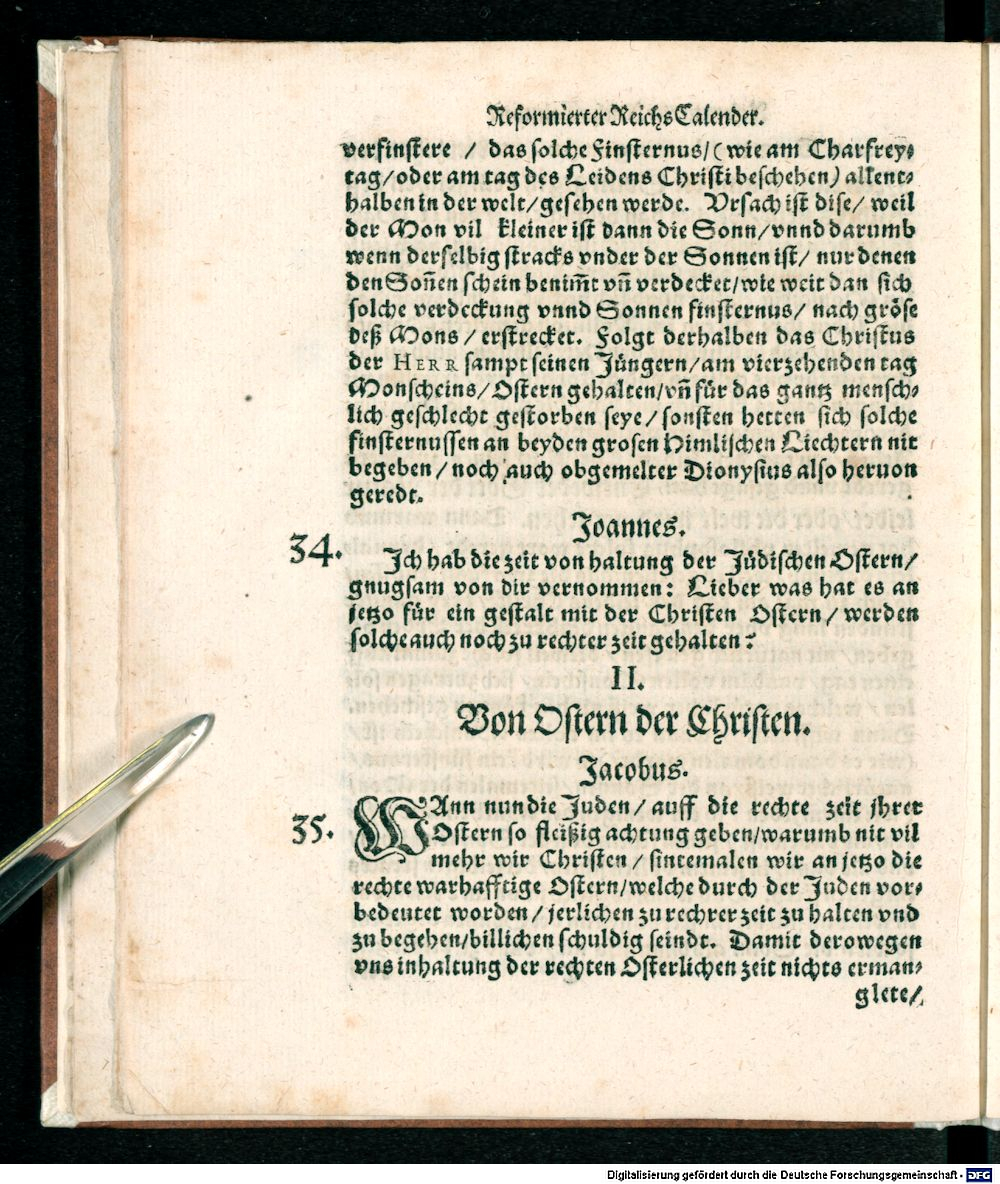 Reformierter ReichsCalender.
verfinstere / das solche Finsternus/ (wie am Charfrey-
tag/oder am tag des Leidens Christi beschehen) allent-
halben in der welt/gesehen werde. Vrsach ist dise/ weil
der Mon vil kleiner ist dann die Sonn/vnnd darumb
wenn derselbig stracks vnder der Sonnen ist/ nur denen
den Sonen̄ schein benim̄t vn̄ verdecket/wie weit dan sich
solche verdeckung vnnd Sonnen finsternus/ nach gröse
deß Mons / erstrecket. Folgt derhalben das Christus
der HERR sampt seinen Jüngern/am vierzehenden tag
Monscheins/Ostern gehalten/vn̄ für das gantz mensch-
lich geschlecht gestorben seye/sonsten hetten sich solche
finsternussen an beyden grosen Himlischen Liechtern nit
begeben/noch auch obgemelter Dionysius also heruon
geredt.
Joannes.
34. Jch hab die zeit von haltung der Jüdischen Ostern/
gnugsam von dir vernommen: Lieber was hat es an
jetzo für ein gestalt mit der Christen Ostern/ werden
solche auch noch zu rechter zeit gehalten?
II.
Von Ostern der Christen.
Jacobus.
35. WAnn nun die Juden/ auff die rechte zeit jhrer
Ostern so fleißig achtung geben/warumb nit vil
mehr wir Christen / sintemalen wir an jetzo die
rechte warhafftige Ostern/welche durch der Juden vor-
bedeutet worden/jerlichen zu rechrer zeit zu halten vnd
zu begehen/billichen schuldig seindt. Damit derowegen
vns inhaltung der rechten Osterlichen zeit nichts erman-
glete/
Digitalisierung gefördert durch die Deutsche Forschungsgemeinschaft - DFG